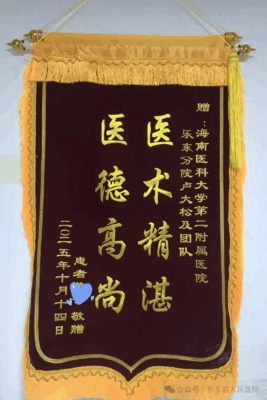 赠：海南医科大学第二附属医院
乐东分院卢大松及团队
医术精湛
医德高尚
患者
敬赠
二〇二五年十月十四日
公众号·乐东县人民医院